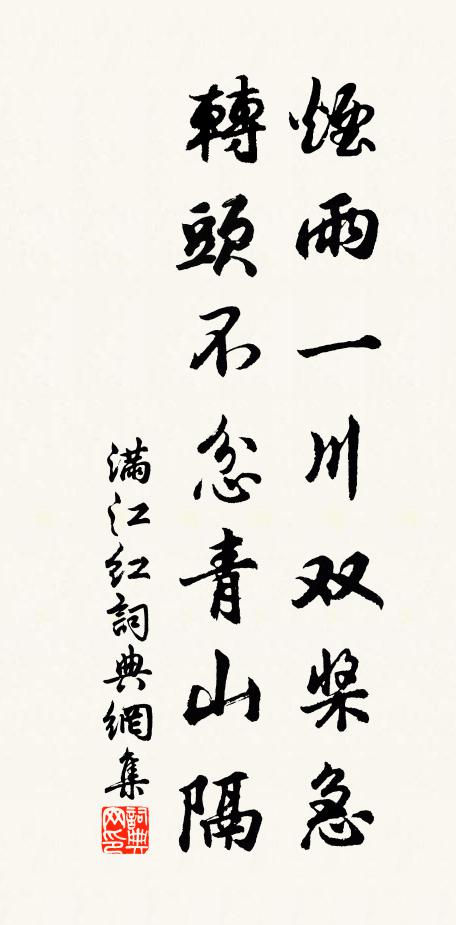 煙雨一川双槳急
轉頭不忿青山隔
满江红詞典網集
詞典网印